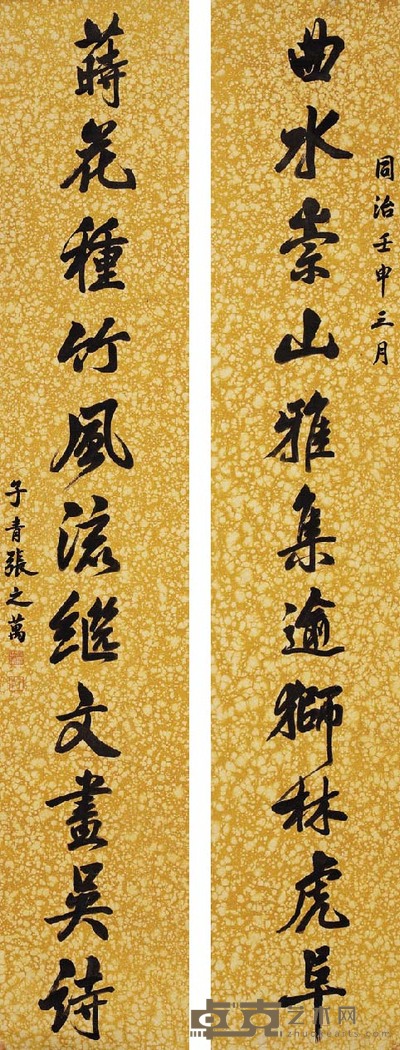 同治壬申三月
曲水崇山雅集逾獅林虎阜
蒔花種竹風流繼文畫吳詩
子青張之萬
卓克艺术网
zhuokearts.com